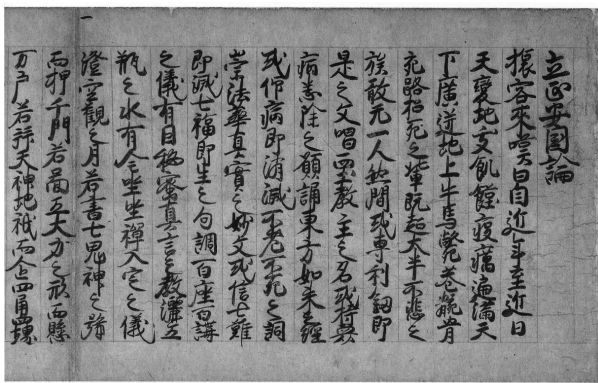 一
立正安国論
旅客來嘆曰自近年至近日
天變地夭飢饉疫癘遍滿天
下廣迸地上牛馬斃巷骸骨
充路招死之輩既超大半不悲之
族敢无一人然間或專利釼即
是之文唱西土教主之名或恃衆
病悉除之願誦東方如來之經
或仰病即消滅不老不死之詞
崇法華真實之妙文或信七難
即滅七福即生之句調百座百講
之儀有因秘密真言之教灑五
瓶之水有全坐禪入定之儀
澄空觀之月若書七鬼神之號
而押千門若圖五大力之形而懸
万戸若拜天神地祇而企四角四堺